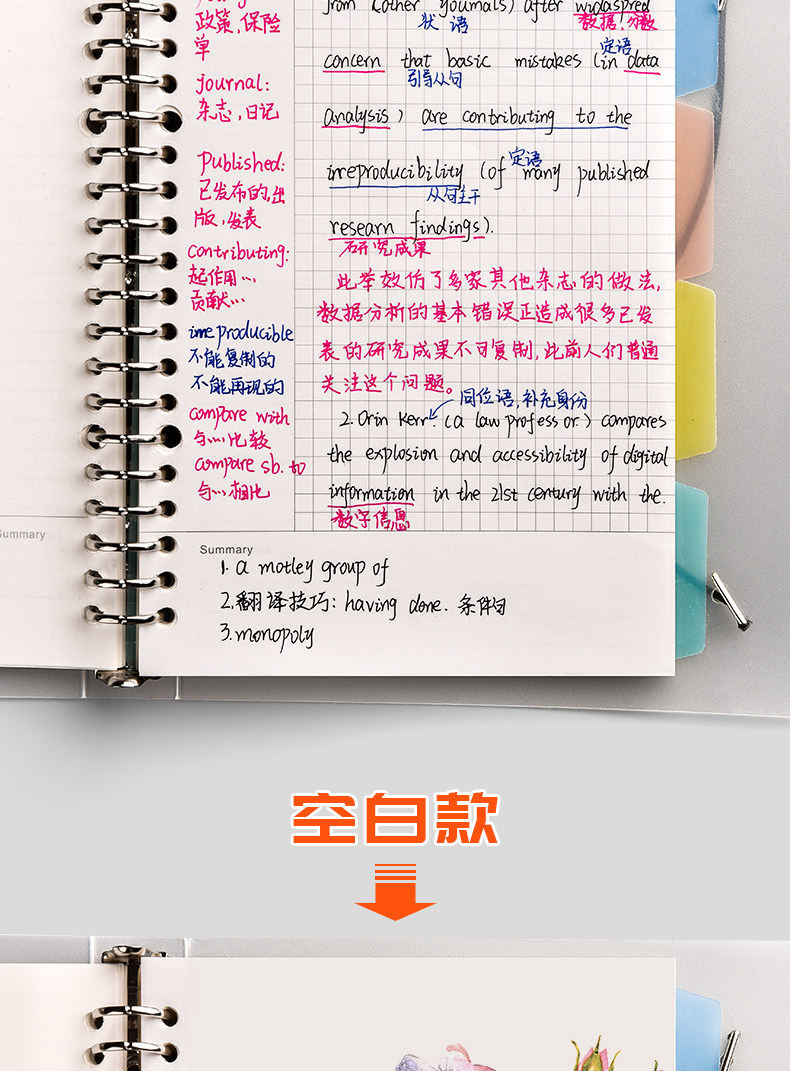 政策,保险
单
journal:
杂志,日记
Published:
已发布的,出
版,发表
contributing:
起作用…
贡献…
irreproducible
不能复制的
不能再现的
compare with
与…比较
compare sb. to
与…相比
from (other youmals) after widaspred
状语
数据,分散
定语
concern that basic mistakes (in data
引导从句
analysis) are contributing to the
定语
irreproducibility (of many published
从句主干
researn findings).
研究成果
此举效仿了多家其他杂志的做法,
数据分析的基本错误正造成很多已发
表的研究成果不可复制,此前人们普通
关注这个问题。
同位语,补充身份
2. Orin Kerr. (a law professor) compares
the explosion and accessibility of digital
information in the 21st century with the.
数字信息
Summary
Summary
1. a motley group of
2.翻译技巧: having done. 条件句
3.monopoly
空白款